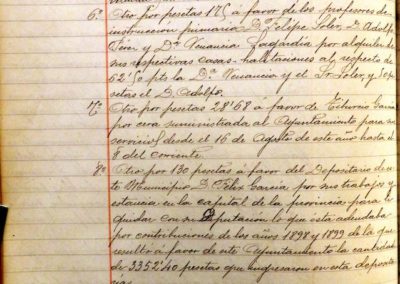 6º Otro por pesetas 175 á favor de los profesores de
instrucción primaria Dⁿ Felipe Soler, Dⁿ Adolfo
y Dª Venancia Lagardía por alquiler de
sus respectivas casas-habitaciones al respecto de
62'50 pts la Dª Venancia y el Sr Soler, y 50 pe
setas el D. Adolfo.
7º Otro por pesetas 28'68 a favor de Tiburcio García
por cera suministrada al Ayuntamiento para su
servicio desde el 16 de Agosto de este año hasta el
8 del corriente.
8º Otro por 130 pesetas á favor del Depositario de es
te Municipio D. Félix García por sus trabajos y
estancia en la capital de la provincia para li
quidar con su Diputación lo que ésta adeudaba
por contribuciones de los años 1898 y 1899 de la que
resultó á favor de este Ayuntamiento la cantidad
de 3352'40 pesetas que ingresaron en esta deposita
ría